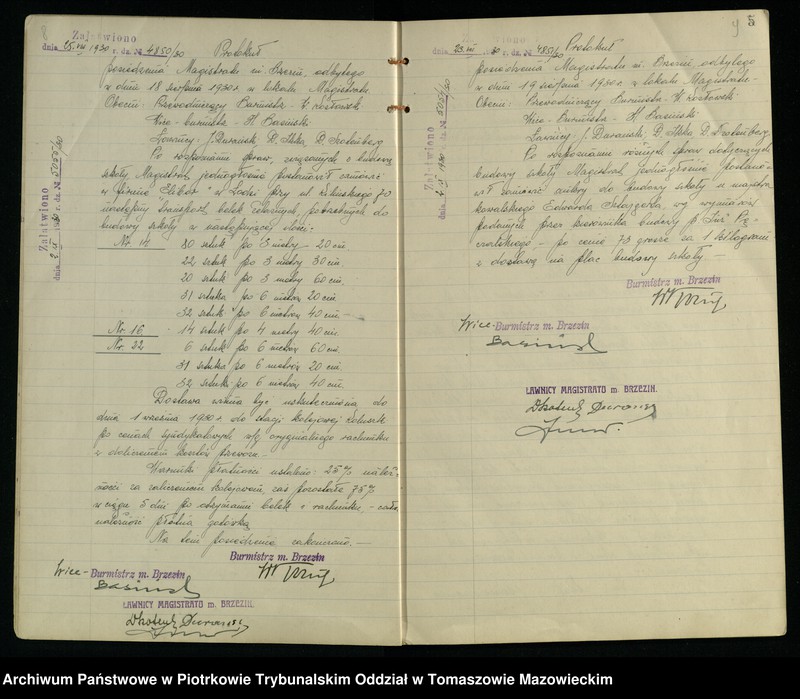 8
Załatwiono
dnia 25.VIII 1930 r. da. № 4850/30
Protokuł
posiedzenia Magistratu m. Brzezin, odbytego
w dniu 18 sierpnia 1930 r. w lokalu Magistratu.
Obecni: Przewodniczący Burmistrz
Wice-burmistrz - Basiński
Ławnicy - J. Durański, D.
Po rozpoznaniu spraw, związanych z budową
szkoły Magistrat jednogłośnie postanowił zamówić
w firmie "Elibor" w Łodzi przy ul. 70
następny transport belek żelaznych potrzebnych do
budowy szkoły w następującej ilości:
Nr. 14 30 sztuk po 5 metry - 20 cm
22 sztuk po 3 metry 30 cm.
20 sztuk po 3 metry 60 cm.
31 sztuka po 6 metrów 20 cm
32 sztuk po 6 metrów 40 cm
Nr. 16 14 sztuk po 4 metry 40 cm.
Nr. 22 6 sztuk po 6 metrów 60 cm.
31 sztuka po 6 metrów 20 cm.
32 sztuk po 6 metrów 40 cm.
Dostawa winna być uskuteczniona do
dnia 1 września 1930 r. do stacji kolejowej Koluszki
po cenach syndykatowych w/g oryginalnego rachunku
z doliczeniem kosztów przewozu -
Warunki płatności ustalono: 25% należ-
ności za zaliczeniem kolejowem, zaś pozostałe 75%
w ciągu 5 dni po otrzymaniu belek i rachunku, - cała
należność płatna gotówką
Na tem posiedzenie zakończono. -
Burmistrz m. Brzezin
Wice- Burmistrz m. Brzezin
Basiński
ŁAWNICY MAGISTRATU m. BRZEZIN.
Załatwiono
9 5
dnia 25.VIII 1930 r. da. № 4851/30
Protokuł
posiedzenia Magistratu m. Brzezin, odbytego
w dniu 19 sierpnia 1930 r. w lokalu Magistratu -
Obecni: Przewodniczący Burmistrz -
Wice-Burmistrz - Basiński
Ławnicy J. Durański, D.
Po rozpoznaniu różnych spraw dotyczących
budowy szkoły Magistrat jednogłośnie postano-
wił zamówić ankry do budowy szkoły u majstra
kowalskiego Edwarda wg wymiarów
podanych przez kierownika budowy p.
- po cenie 73 grosze za 1 kilogram
z dostawą na plac budowy szkoły -
Burmistrz m. Brzezin
Wice- Burmistrz m. Brzezin
Basiński
ŁAWNICY MAGISTRATU m. BRZEZIN.
Archiwum Państwowe w Piotrkowie Trybunalskim Oddział w Tomaszowie Mazowieckim